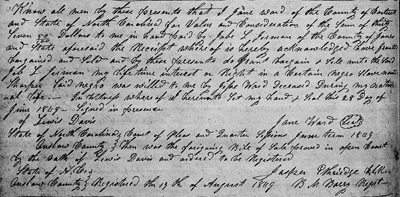 Know all men by these presents that I Jane Ward of the County of Carteret
and State of North Carolina for Value and Consideration of the Sum of thirty
Seven 50/ Dollars to me in hand paid by Jabe L. Jerman of the County of Jones
and State aforesaid the Receipt whereof is hereby acknowledged have granted
bargained and Sold and by these presents do Grant bargain & Sell unto the said
Jabe L Jerman my life time interest or Right in a Certain negro Slave named
Said negro was willed to me by Ward Deceased During my natural
life In witness whereof I hereunto Set my hand & Seal this 28 Day of
June 1849 Signed in presence
of Lewis Davis Jane Ward
State of North Carolina, Court of Pleas and Quarter Sessions June term 1849
Onslow County } Then was the foregoing Bill of Sale proved in open Court
by the Oath of Lewis Davis and ordered to be Registered
State of N. Co. } Jasper Etheridge Clk
Onslow County } Registered the 19th of August 1849